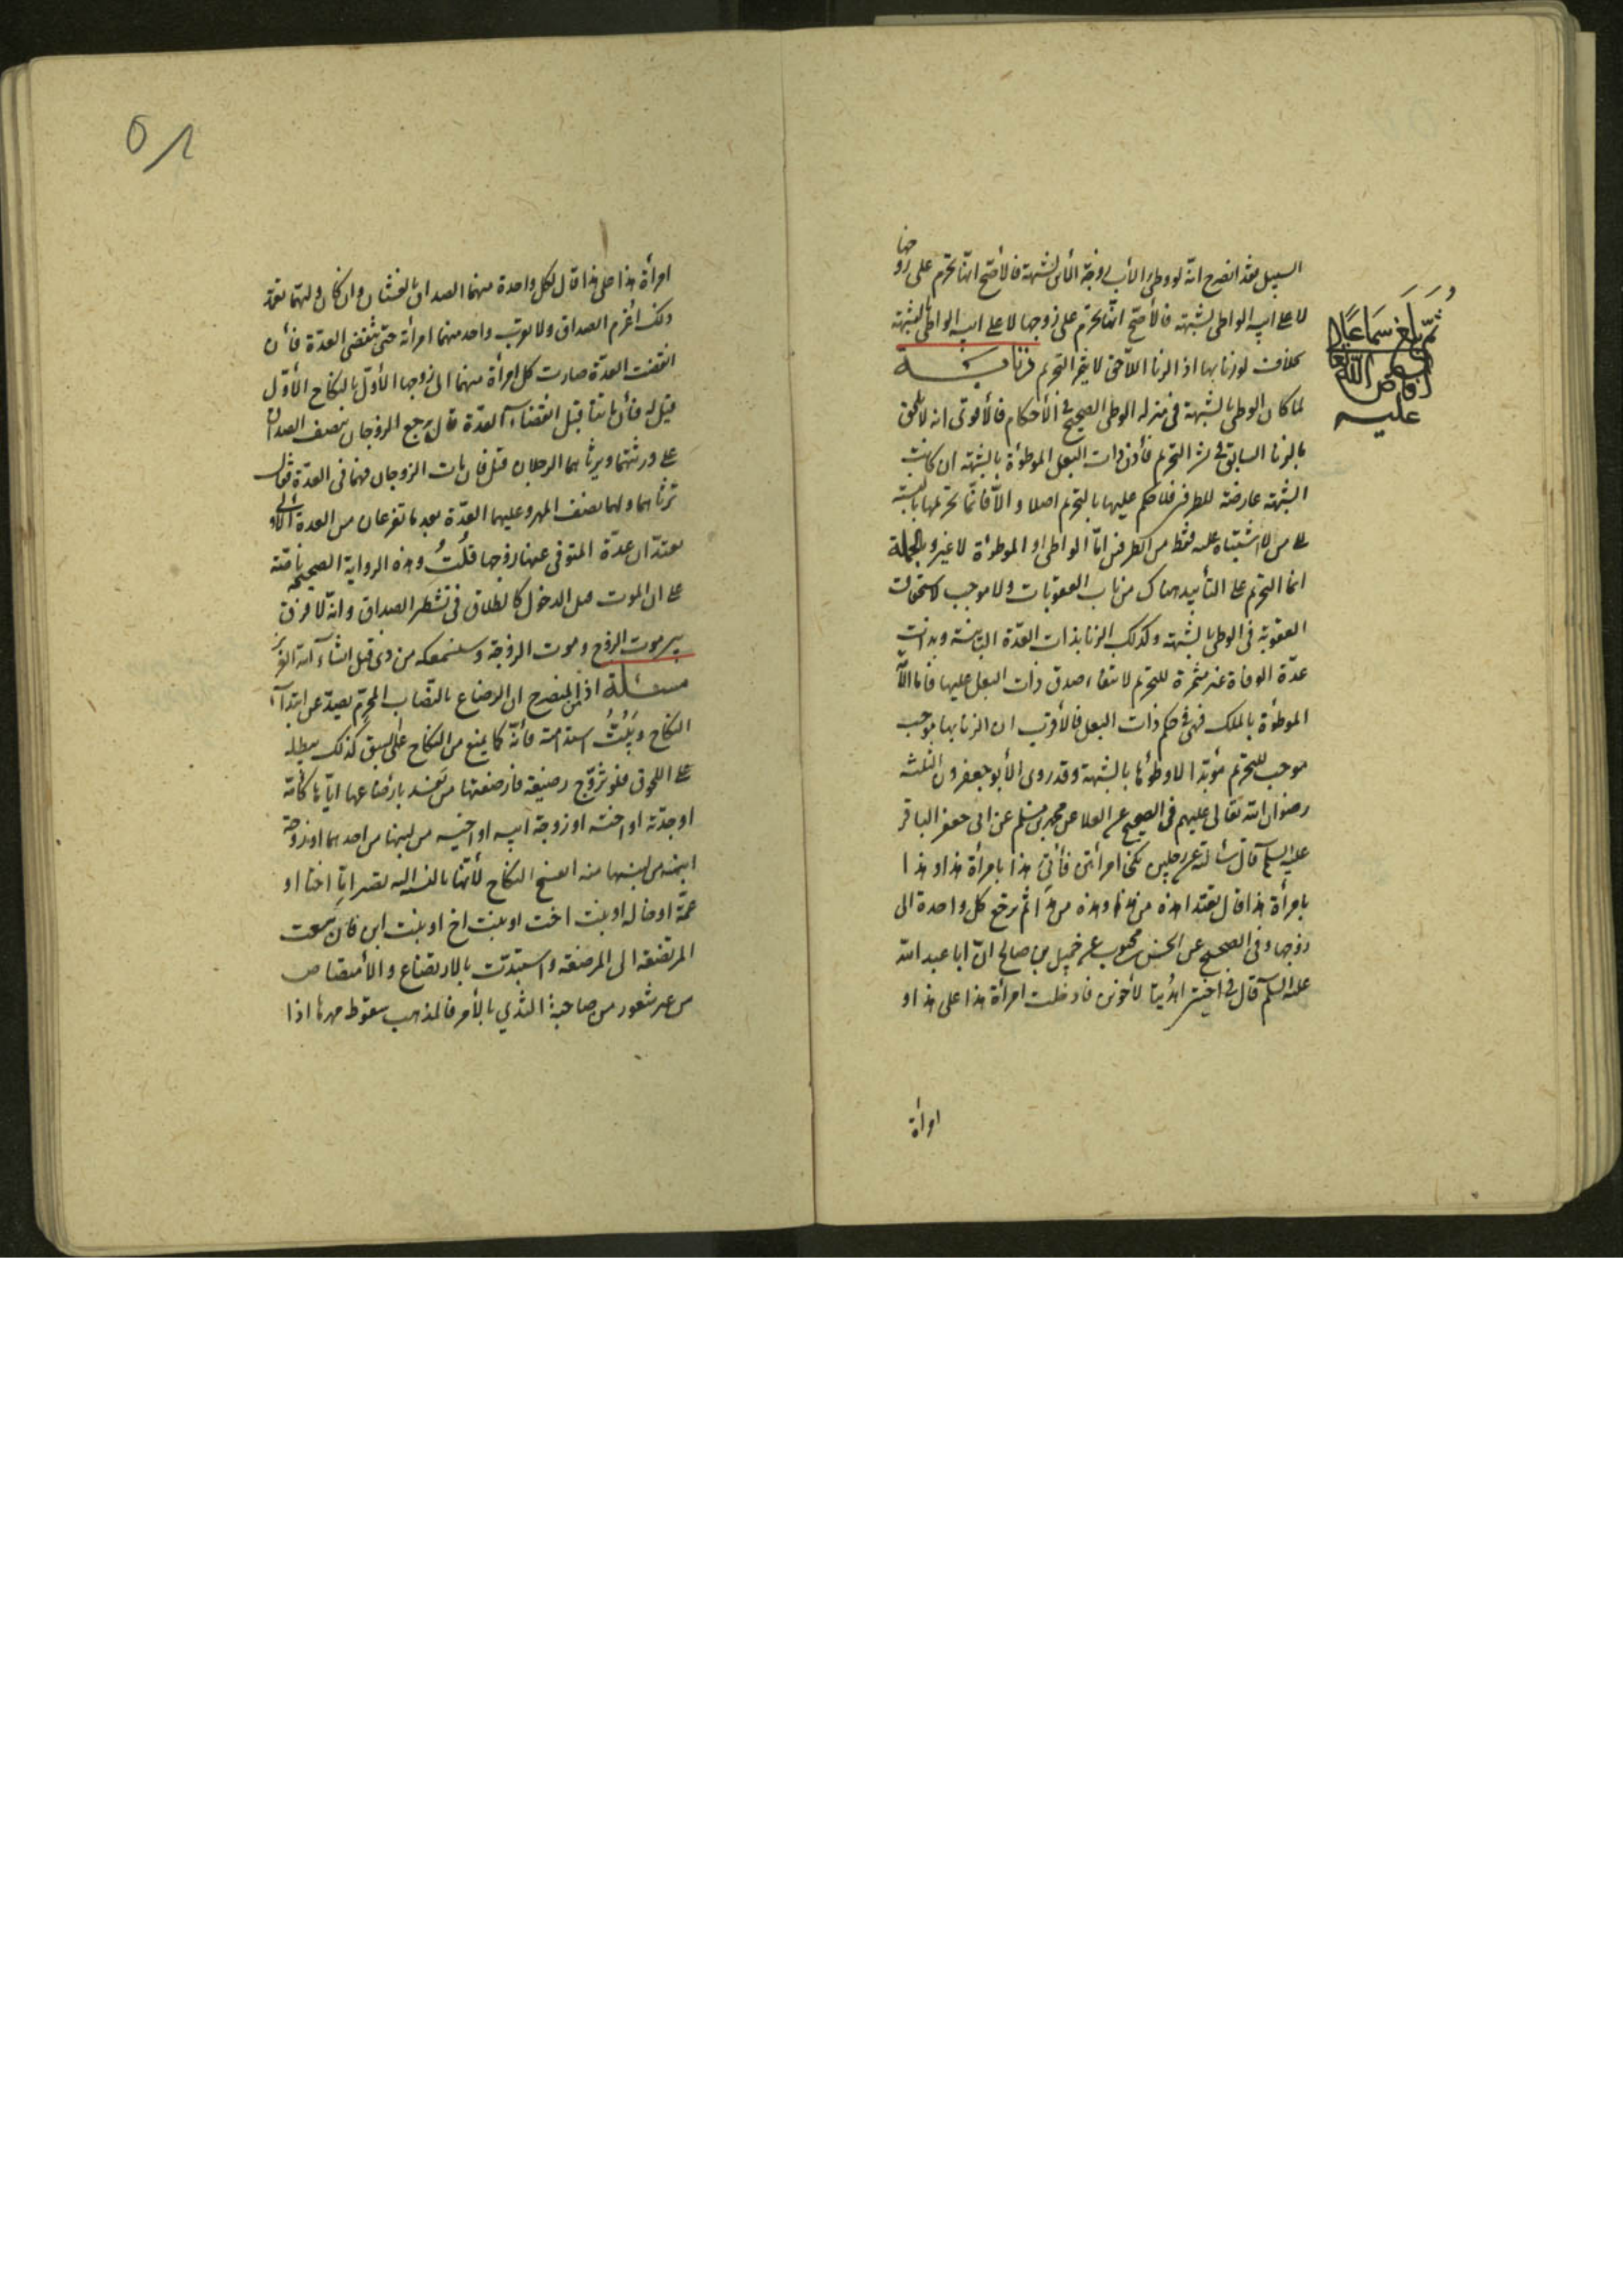 السبيل فقد انصرح انه لو وطئ الأب زوجة الابن لشبهة فالأصح انها تحرم على زوجها
لا على ابيه الواطي لشبهة فالأصح انها تحرم على زوجها لا على ابيه الواطي بالشبهة
بخلاف لو زنا بها اذ الزنا اللاحق لا ينشر التحريم
لما كان الوطي بالشبهة في منزلة الوطي الصحيح في الأحكام فالأقوى انه لا يلحق
بالزنا السابق في نشر التحريم فأذن ذات البعل الموطوءة بالشبهة ان كانت
الشبهة عارضة للطرفين فلا حكم عليها بالتحريم اصلا و الّا فانما تحرمها بالنسبة
على من لا اشتباه عليه فقط من الطرفين امّا الواطي او الموطوءة لا غير وبالجملة
انما التحريم على التأبيد هناك من باب العقوبات ولا موجب لاستحقاق
العقوبة في الوطي بالشبهة وكذلك الزنا بذات العدّة البائنة وبذات
عدّة الوفاة غير مثمرة للتحريم لانتفاء صدق ذات البعل عليها فاما الأمة
الموطوءة بالملك فهي في حكم ذات البعل فالأقرب ان الزنا بها يوجب
موجب للتحريم مؤبّدا لا وطؤها بالشبهة وقد روى الأبو جعفرون الثلثة
رضوان الله تعالى عليهم في الصحيح عن العلا عن محمد بن مسلم عن ابي جعفر الباقر
عليه السلم قال سألته عن رجلين نكحا امرأتين فأتي هذا بامرأة هذا و هذا
بامرأة هذا قال تعتد هذه من هذا وهذه من هذا ثم ترجع كل واحدة الى
زوجها وفي الصحيح عن الحسن بن محبوب عن جميل بن صالح انّ ابا عبد الله
عليه السلم قال في اختين اهديتا لأخوين فادخلت امرأة هذا على هذا و
امرأة
ثُمّ بَلَغَ سَمَاعًا
أفاض الله تعالى
عليه
٥١
امرأة هذا على هذا قال لكل واحدة منهما الصداق بالغشيان وان كان وليهما تعمّد
ذلك اغرم الصداق ولا يقرب واحد منهما امرأته حتى تنقضي العدة فأن
انقضت العدّة صارت كل امرأة منهما الى زوجها الأول بالنكاح الأوّل
قيل له فأن ماتتا قبل انقضاء العدة قال يرجع الزوجان بنصف الصداق
على ورثتهما ويرثاهما الرجلان قيل فان مات الزوجان وهما في العدّة قال
ترثاهما ولهما نصف المهر وعليهما العدّة بعد ما تفرغان من العدة الأولى
تعتدّان عدّة المتوفى عنها زوجها قُلتُ وهذه الرواية الصحيحة ناصّة
على ان الموت قبل الدخول كالطلاق في تشطر الصداق وانّه لا فرق
بين موت الزوج وموت الزوجة وسنسمعكه من ذي قبل انشاء الله العزيز
مسئلة اذ من المنصرح ان الرضاع بالنصاب المحرّم يصدّ عن ابتداء
النكاح ويَبُتُّ استدامته فأنّه كما يمنع من النكاح على السبق كذلك يبطله
على اللحوق فلو تزوّج رضيعة فارضعتها من يفسد بارضاعها ايّاها كأمّه
او جدته او اخته او زوجة ابيه او اخيه من لبنها من احدهما او زوجة
ابنه من لبنها منه انفسخ النكاح لأنّها بالنسبة اليه تصير امّا اختا او
عمّة او خالة او بنت اخت او بنت اخ او بنت ابن فان سعت
المرتضعة الى المرضعة واستبدّت بالارتضاع والأمتصاص
من غير شعور من صاحبة الثدي بالأمر فالمذهب سقوط مهرها اذا